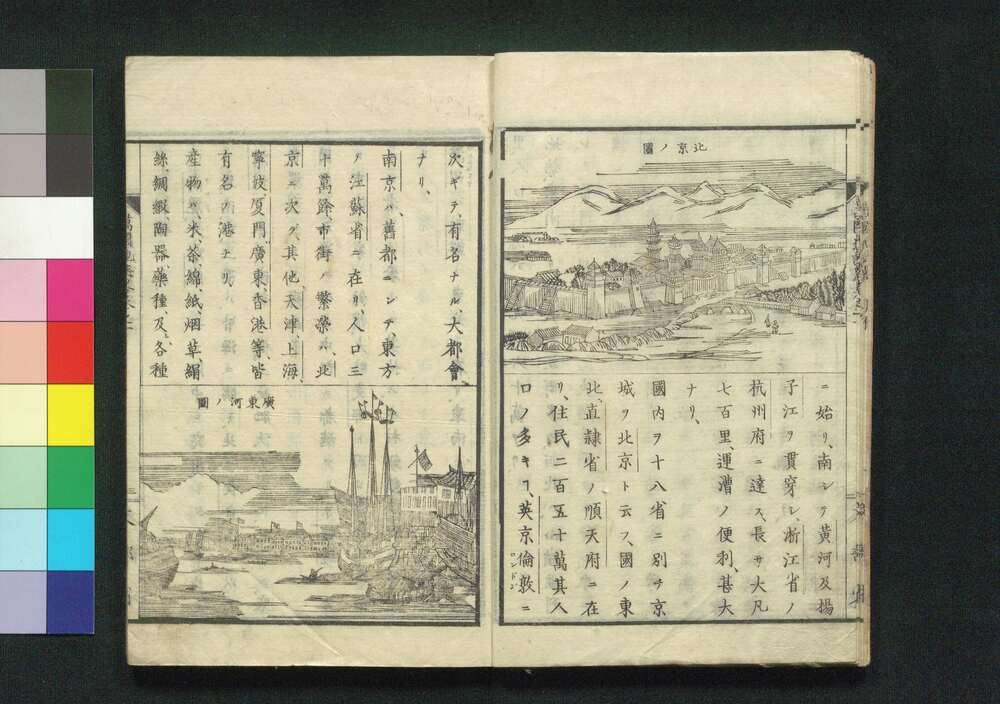 北京ノ圖
ニ始リ、南シテ黄河及揚
子江ヲ貫穿シ浙江省ノ
杭州府ニ達ス、長サ大凡
七百里、運漕ノ便利、甚大
ナリ、
國内ヲ十八省ニ別チ京
城ヲ北京ト云フ、國ノ東
北、直隷省ノ順天府ニ在
リ、住民二百五十萬其人
口ノ多キヿ、英京倫敦ニ
ロンドン
次ギテ、有名ナル、大都會、
ナリ、
南京ハ、舊都ニシテ、東方
ノ江蘇省ニ在リ、人口三
十萬餘、市街ノ繁榮ハ、北
京ニ次グ、其他、天津、上海、
寧波、厦門、廣東、香港等、皆
有名ノ港ナリ、
産物ハ、米、茶、綿、紙、烟草、絹
絲、綢緞、陶器、藥種、及、各種
廣東河ノ圖